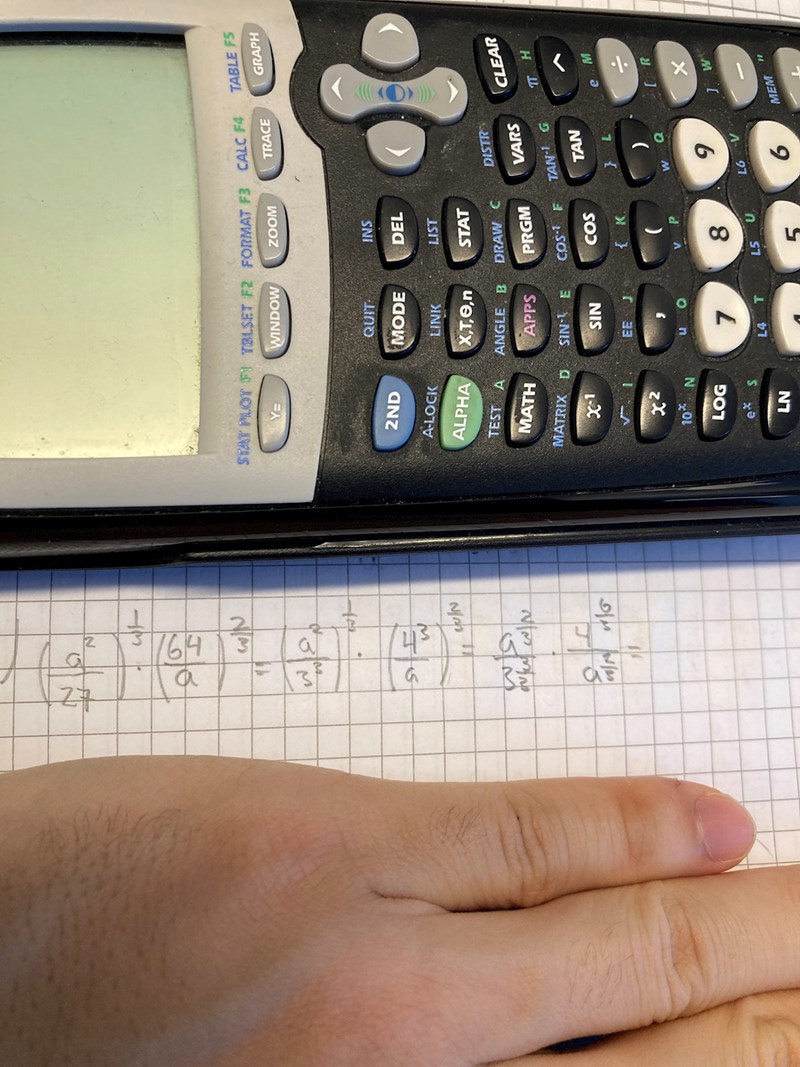 STAT PLOT F1 TBLSET F2 FORMAT F3 CALC F4 TABLE F5
Y= WINDOW ZOOM TRACE GRAPH
QUIT INS
2ND MODE DEL
A-LOCK LINK LIST
ALPHA X,T,Θ,n STAT
TEST A ANGLE B DRAW C DISTR
MATH APPS PRGM VARS CLEAR
MATRIX D SIN⁻¹ E COS⁻¹ F TAN⁻¹ G π H
x⁻¹ SIN COS TAN ^
√ I EE J { K } L e M
x² , ( ) ÷
10ˣ N u O v P w Q [ R
LOG 7 8 9 ×
eˣ S L4 T L5 U L6 V ] W
LN 4 5 6 −
MEM "
+
) (a²/27)^(1/3) · (64/a)^(2/3) = (a²/3³)^(1/3) · (4³/a)^(2/3) = a^(2/3)/3^(3/3) · 4^(6/3)/a^(2/3) =